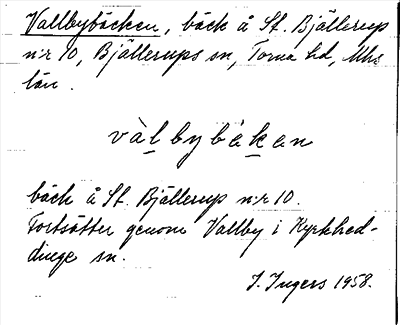 Vallbybäcken, bäck å St. Bjällerup
n:r 10, Bjällerups sn, Torna hd, Mhs
län.
vàlbybäkan
bäck å St. Bjällerup n:r 10.
Fortsätter genom Vallby i Kyrkhed-
dinge sn.
I. Ingers 1958.